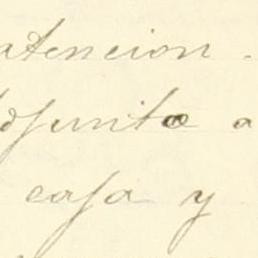 atencion.
adjunto a
casa y